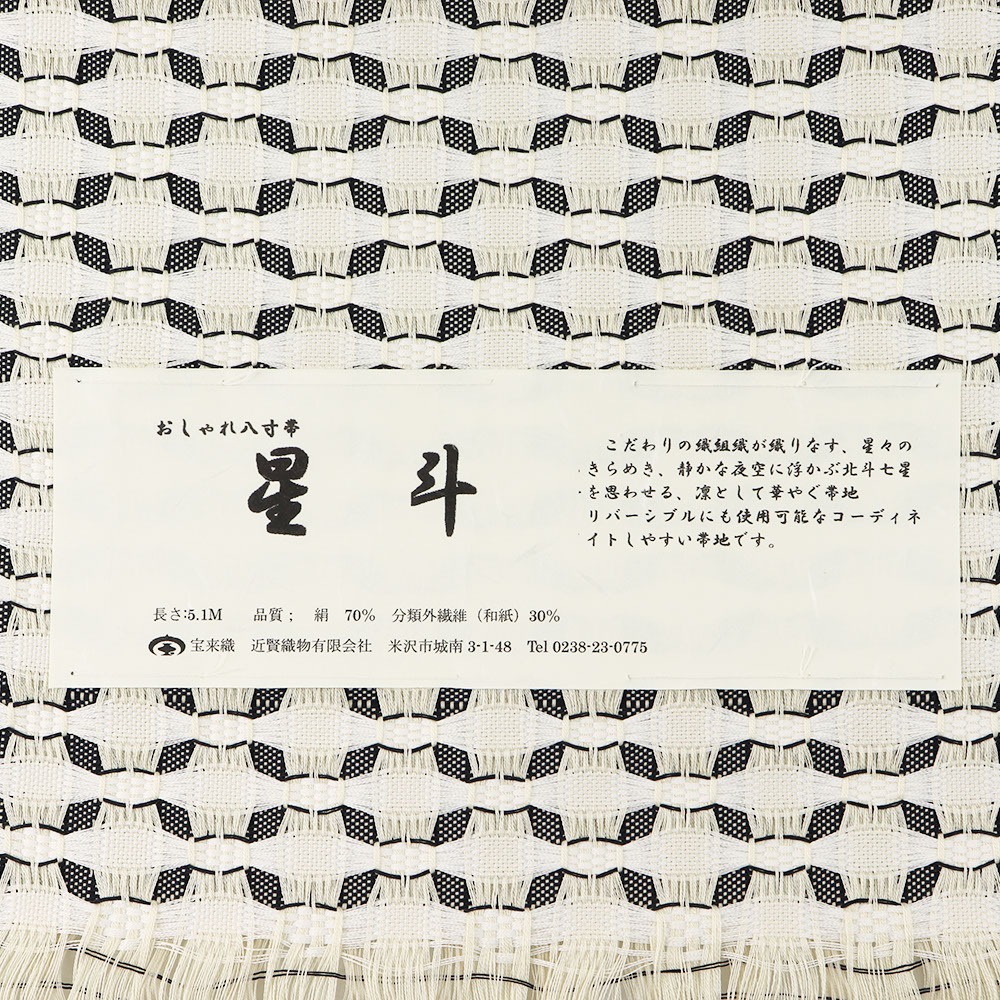 おしゃれ八寸帯
星 斗
こだわりの織組織が織りなす、星々の
きらめき、静かな夜空に浮かぶ北斗七星
を思わせる、凛として華やぐ帯地
リバーシブルにも使用可能なコーディネ
イトしやすい帯地です。
長さ:5.1M 品質； 絹 70% 分類外繊維（和紙）30%
宝来織 近賢織物有限会社 米沢市城南 3-1-48 Tel 0238-23-0775